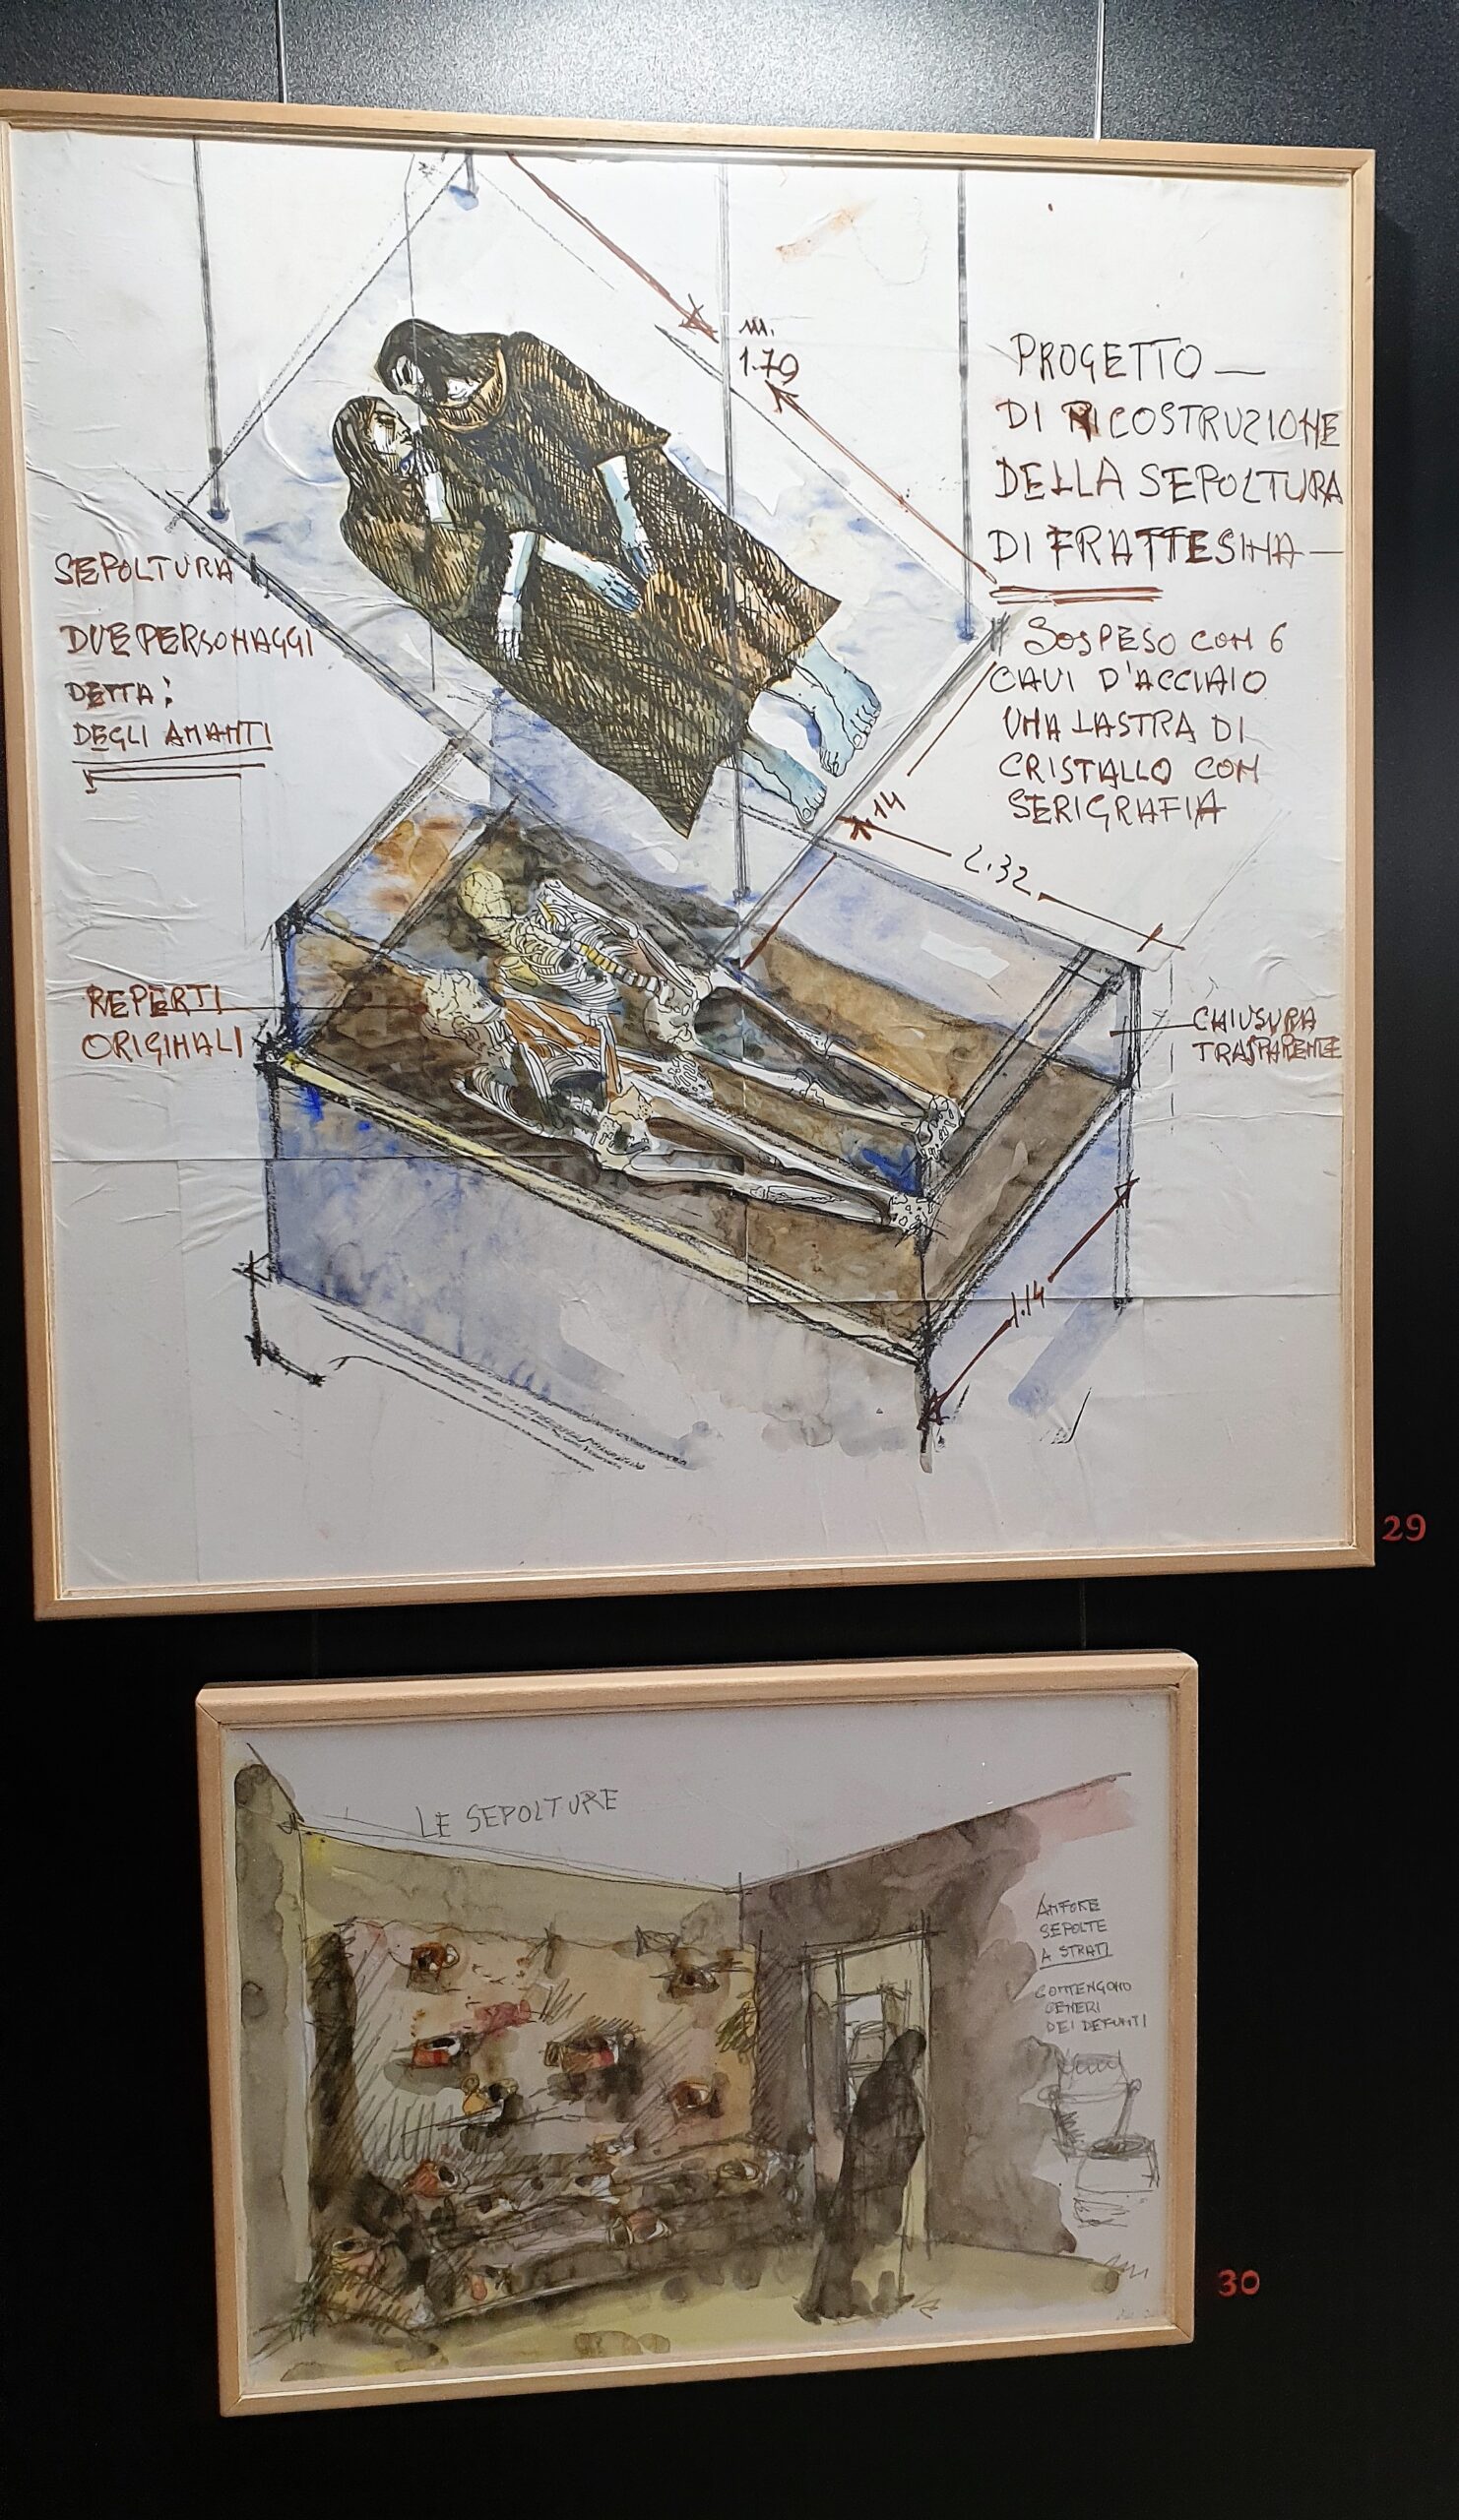 PROGETTO —
DI RICOSTRUZIONE
DELLA SEPOLTURA
DI FRATTESINA —
SOSPESO CON 6
CAVI D'ACCIAIO
UNA LASTRA DI
CRISTALLO CON
SERIGRAFIA
m.
1.70
SEPOLTURA
DUE PERSONAGGI
DETTA:
DEGLI AMANTI
1.14
2.32
REPERTI
ORIGINALI
CHIUSURA
TRASPARENTE
1.14
29
LE SEPOLTURE
ANFORE
SEPOLTE
A STRATI
CONTENGONO
CENERI
DEI DEFUNTI
30